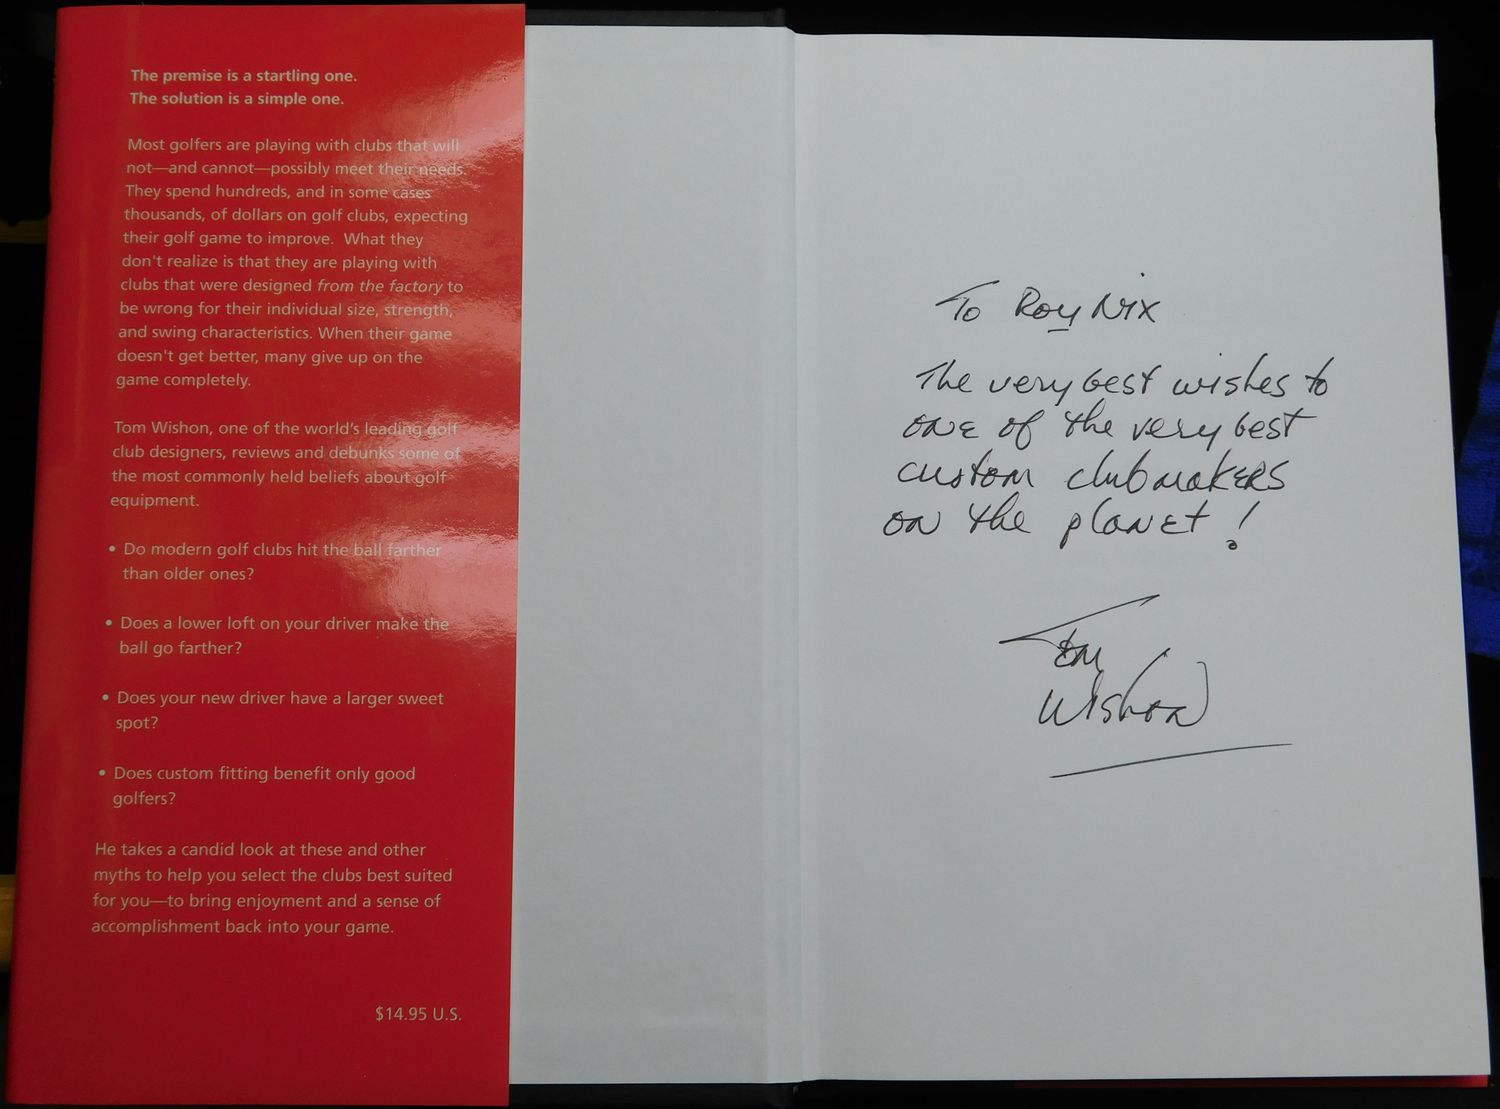 The premise is a startling one.
The solution is a simple one.
Most golfers are playing with clubs that will
not—and cannot—possibly meet their needs.
They spend hundreds, and in some cases
thousands, of dollars on golf clubs, expecting
their golf game to improve. What they
don't realize is that they are playing with
clubs that were designed from the factory to
be wrong for their individual size, strength,
and swing characteristics. When their game
doesn't get better, many give up on the
game completely.
Tom Wishon, one of the world's leading golf
club designers, reviews and debunks some of
the most commonly held beliefs about golf
equipment.
• Do modern golf clubs hit the ball farther
than older ones?
• Does a lower loft on your driver make the
ball go farther?
• Does your new driver have a larger sweet
spot?
• Does custom fitting benefit only good
golfers?
He takes a candid look at these and other
myths to help you select the clubs best suited
for you—to bring enjoyment and a sense of
accomplishment back into your game.
$14.95 U.S.
To Roy Nix
The very best wishes to
one of the very best
custom clubmakers
on the planet!
Tom
Wishon